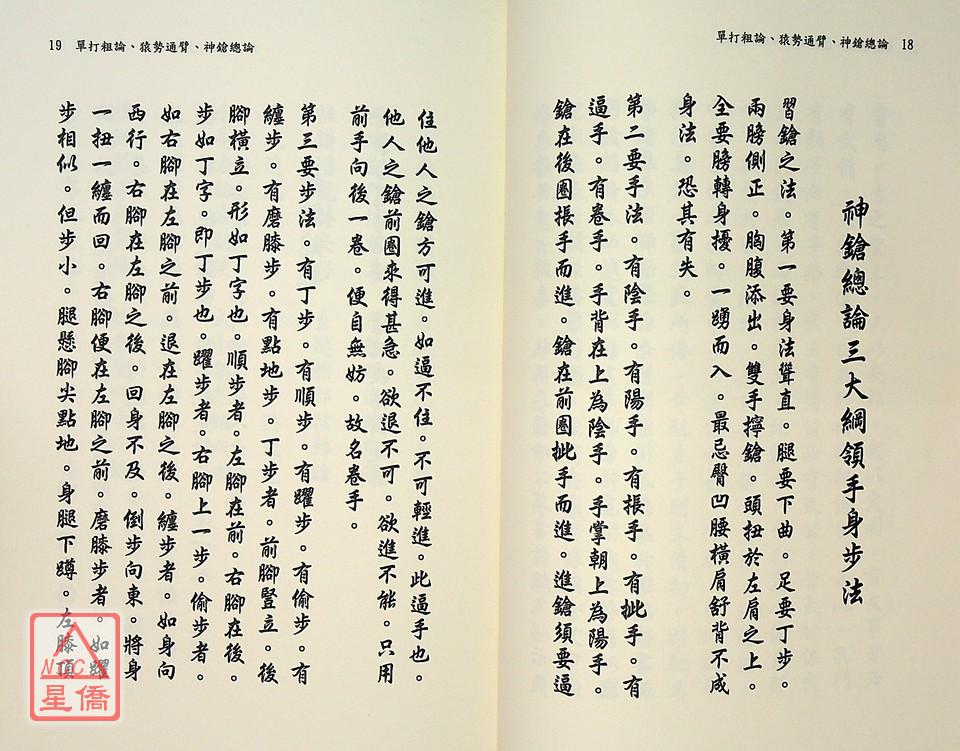 單打粗論、猿勢通臂、神鎗總論 18
神鎗總論三大綱領手身步法
習鎗之法。第一要身法聳直。腿要下曲。足要丁步。
兩膀側正。胸腹添出。雙手擰鎗。頭扭於左肩之上。
全要膀轉身擾。一踴而入。最忌臀凹腰橫肩舒背不成
身法。恐其有失。
第二要手法。有陰手。有陽手。有掁手。有㧗手。有
逼手。有卷手。手背在上為陰手。手掌朝上為陽手。
鎗在後圈掁手而進。鎗在前圈㧗手而進。進鎗須要逼
19 單打粗論、猿勢通臂、神鎗總論
住他人之鎗方可進。如逼不住。不可輕進。此逼手也。
他人之鎗前圈來得甚急。欲退不可。欲進不能。只用
前手向後一卷。便自無妨。故名卷手。
第三要步法。有丁步。有順步。有躍步。有偷步。有
纏步。有磨膝步。有點地步。丁步者。前腳豎立。後
腳橫立。形如丁字也。順步者。左腳在前。右腳在後。
步如丁字。即丁步也。躍步者。右腳上一步。偷步者。
如右腳在左腳之前。退在左腳之後。纏步者。如身向
西行。右腳在左腳之後。回身不及。倒步向東。將身
一扭一纏而回。右腳便在左腳之前。磨膝步者。如躍
步相似。但步小。腿懸腳尖點地。身腿下蹲。左膝頂
NTC
星僑